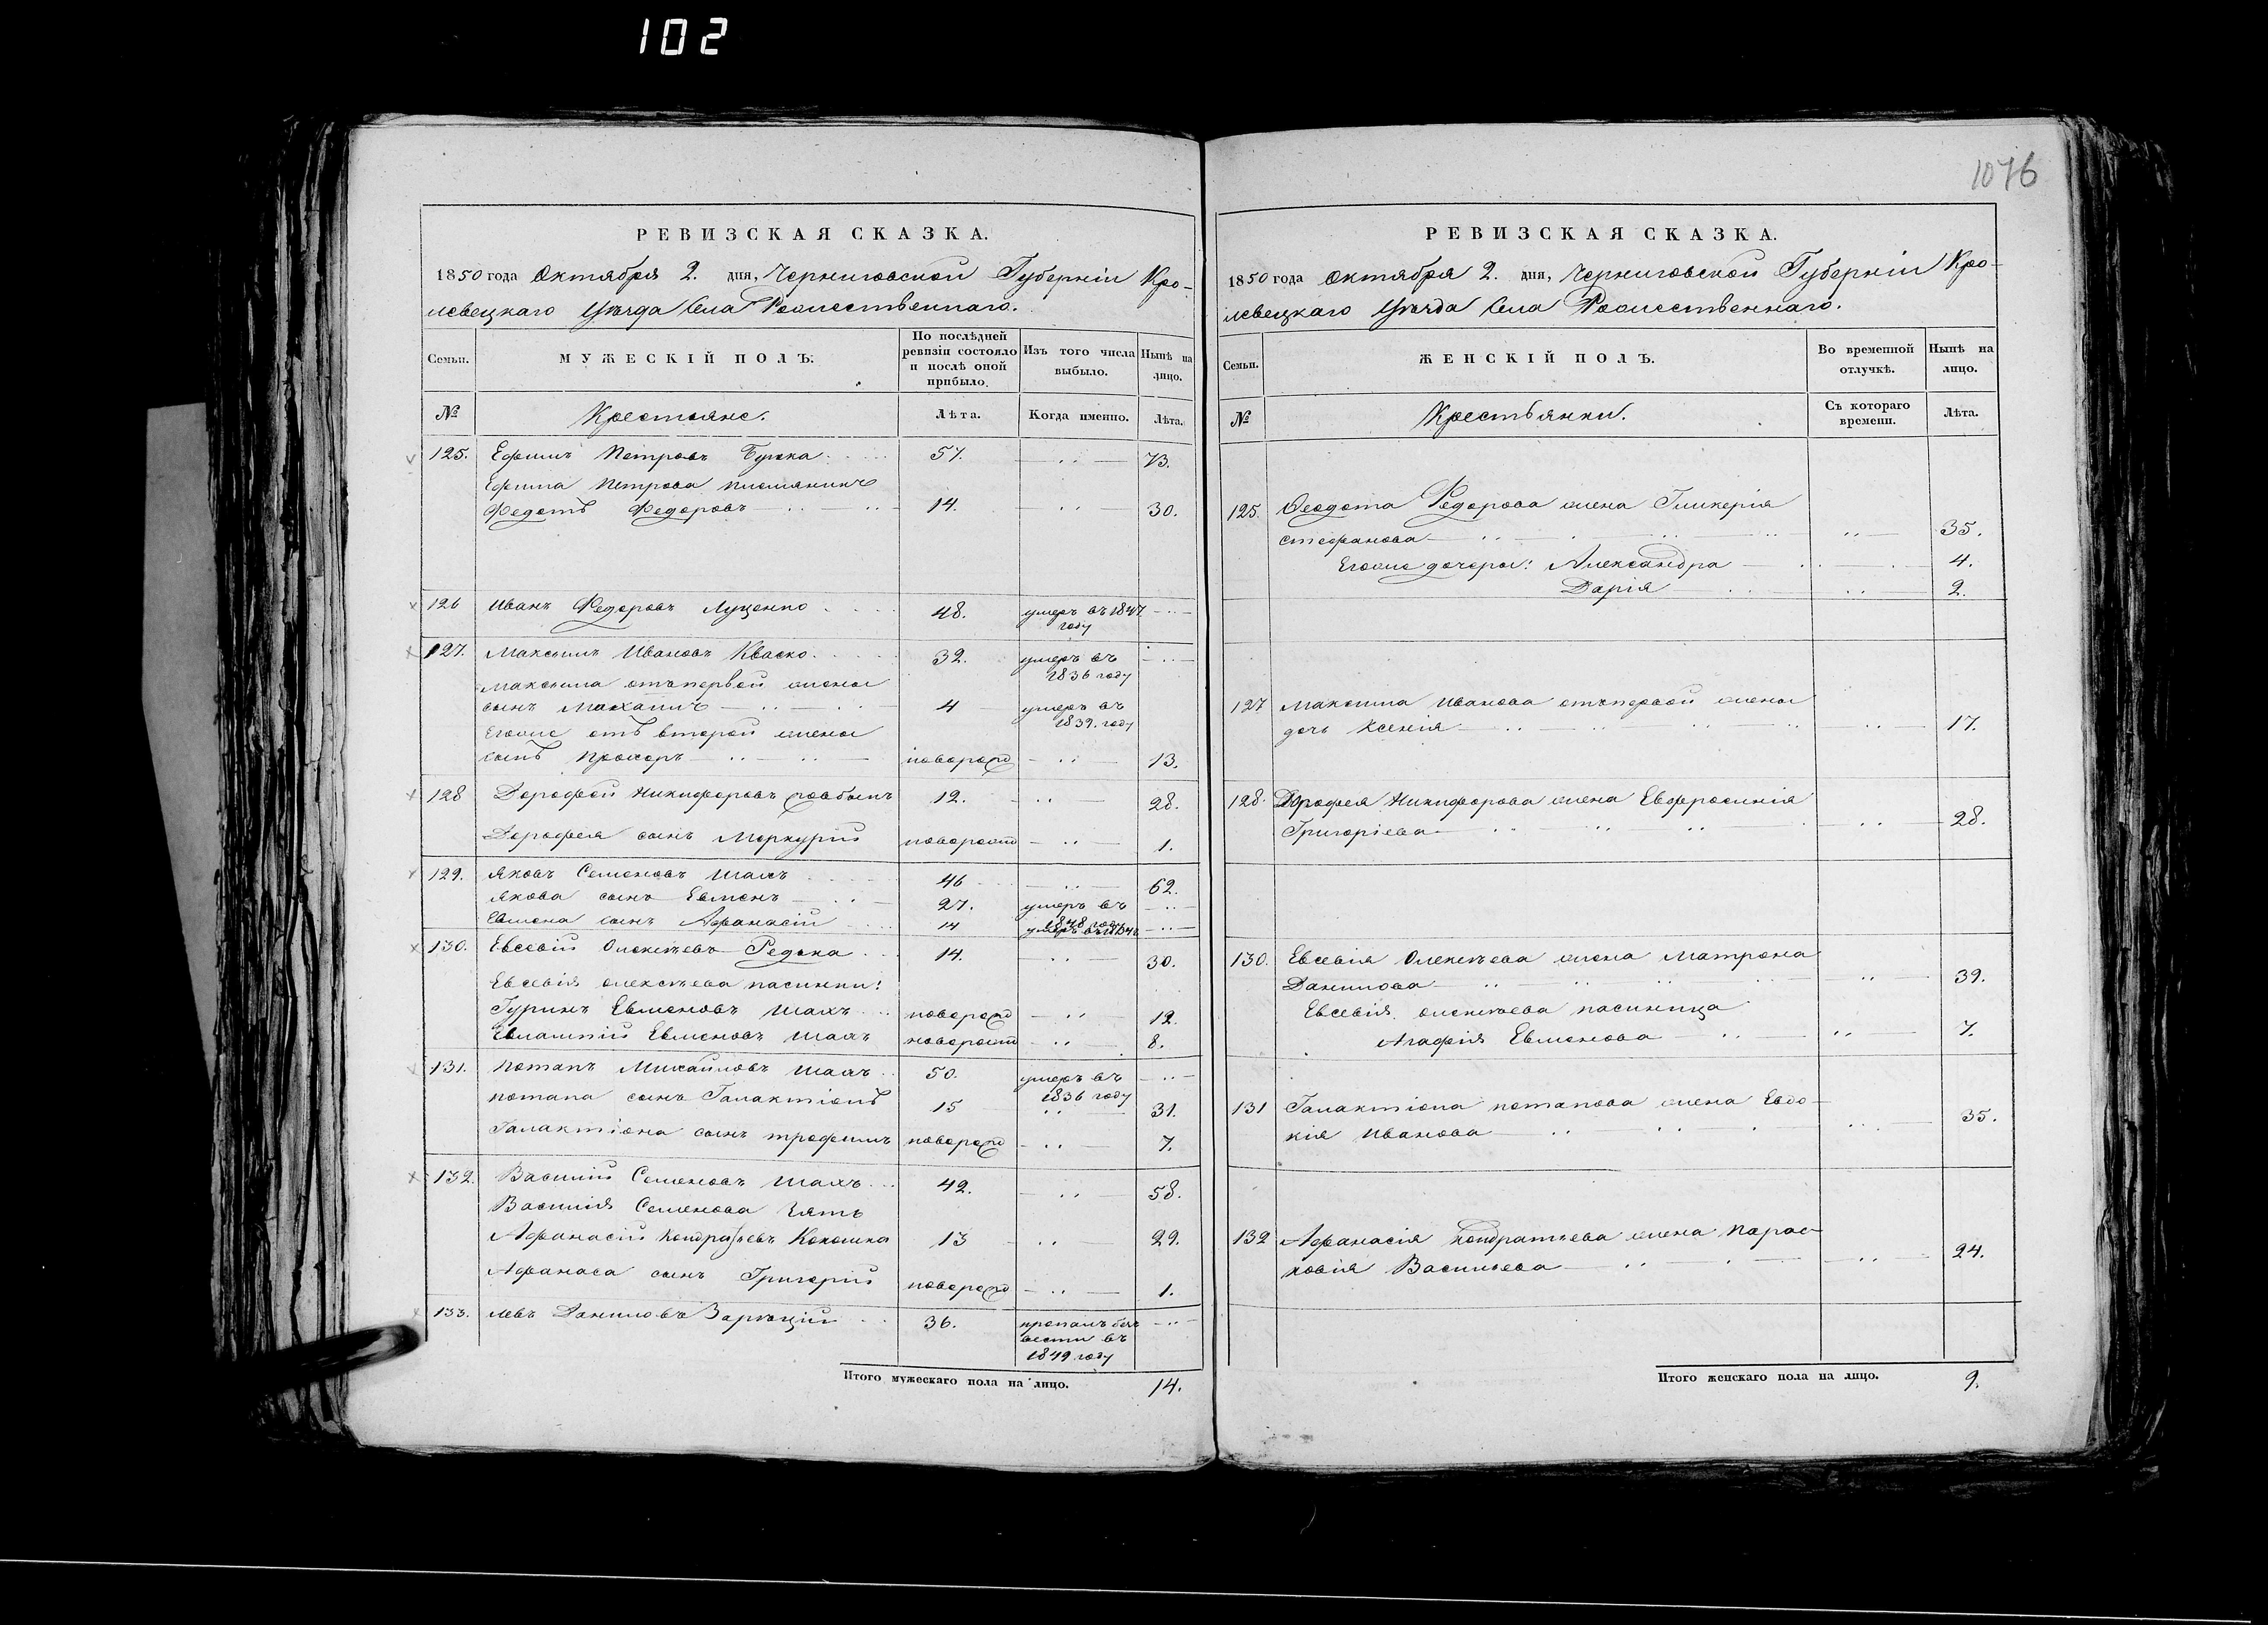 102
1076
РЕВИЗСКАЯ СКАЗКА.
1850 года Октября 2. дня, Черниговской Губерніи Кро-
левецкаго Уѣзда Села Рожественнаго.
Семьи.
МУЖЕСКІЙ ПОЛЪ.
По послѣдней
ревизіи состояло
и послѣ оной
прибыло.
Изъ того числа
выбыло.
Нынѣ на
лицо.
№
Крестьяне.
Лѣта.
Когда именно.
Лѣта.
125. Ефимъ Петровъ 57. 73.
Ефима Петрова племянникъ
Федотъ Федоровъ 14. 30.
126 Иванъ Федоровъ Луценко 48. умеръ въ 1847
году
127. Максимъ Ивановъ Кваско. 32. умеръ въ
1836 году
Максима отъ первой жены
сынъ 4 умеръ въ
1839. году
Егоже отъ второй жены
сынъ Прохоръ новорожд 13.
128 Дорофей Никифоровъ 12. 28.
Дорофея сынъ Меркурій новорожд 1.
129. Яковъ Семеновъ Шахъ 46 62.
Якова сынъ Евменъ 27. умеръ въ
1848 году
Евмена сынъ Афанасій 14 умеръ въ
130. Евсевій Олексѣевъ Редька 14. 30.
Евсевія Олексѣева пасинки:
Гуринъ Евменовъ Шахъ новорожд 12.
Евлампій Евменовъ Шахъ новорожд 8.
131. Потапъ Михайловъ Шахъ 50. умеръ въ
1836 году
Потапа сынъ Галактіонъ 15 31.
Галактіона сынъ Трофимъ новорожд 7.
132. Василій Семеновъ Шахъ 42. 58.
Василія Семенова зять
Афанасій Кондратьевъ Кокошка 13 29.
Афанаса сынъ Григорій новорожд 1.
133. Левъ Даниловъ Зарѣцкій 36. пропалъ безъ
вести въ
1849 году
Итого мужескаго пола на лицо. 14.
РЕВИЗСКАЯ СКАЗКА.
1850 года Октября 2. дня, Черниговской Губерніи Кро-
левецкаго Уѣзда Села Рожественнаго.
Семьи.
ЖЕНСКІЙ ПОЛЪ.
Во временной
отлучкѣ.
Нынѣ на
лицо.
№
Крестьянки.
Съ котораго
времени.
Лѣта.
125. Феодота Федорова жена Гликерія
Стефанова 35.
Егоже дочери: Александра 4.
Дарія 2.
127 Максима Иванова отъ первой жены
дочь Ксенія 17.
128. Дорофея Никифорова жена Евфросинія
Григоріева 28.
130. Евсевія Олексѣева жена Матрона
Данилова 39.
Евсевія Олексѣева пасинница
Агафія Евменова 7.
131 Галактіона Потапова жена Евдо-
кія Иванова 35.
132 Афанасія Кондратьева жена Парас-
ковія Васильева 24.
Итого женскаго пола на лицо. 9.